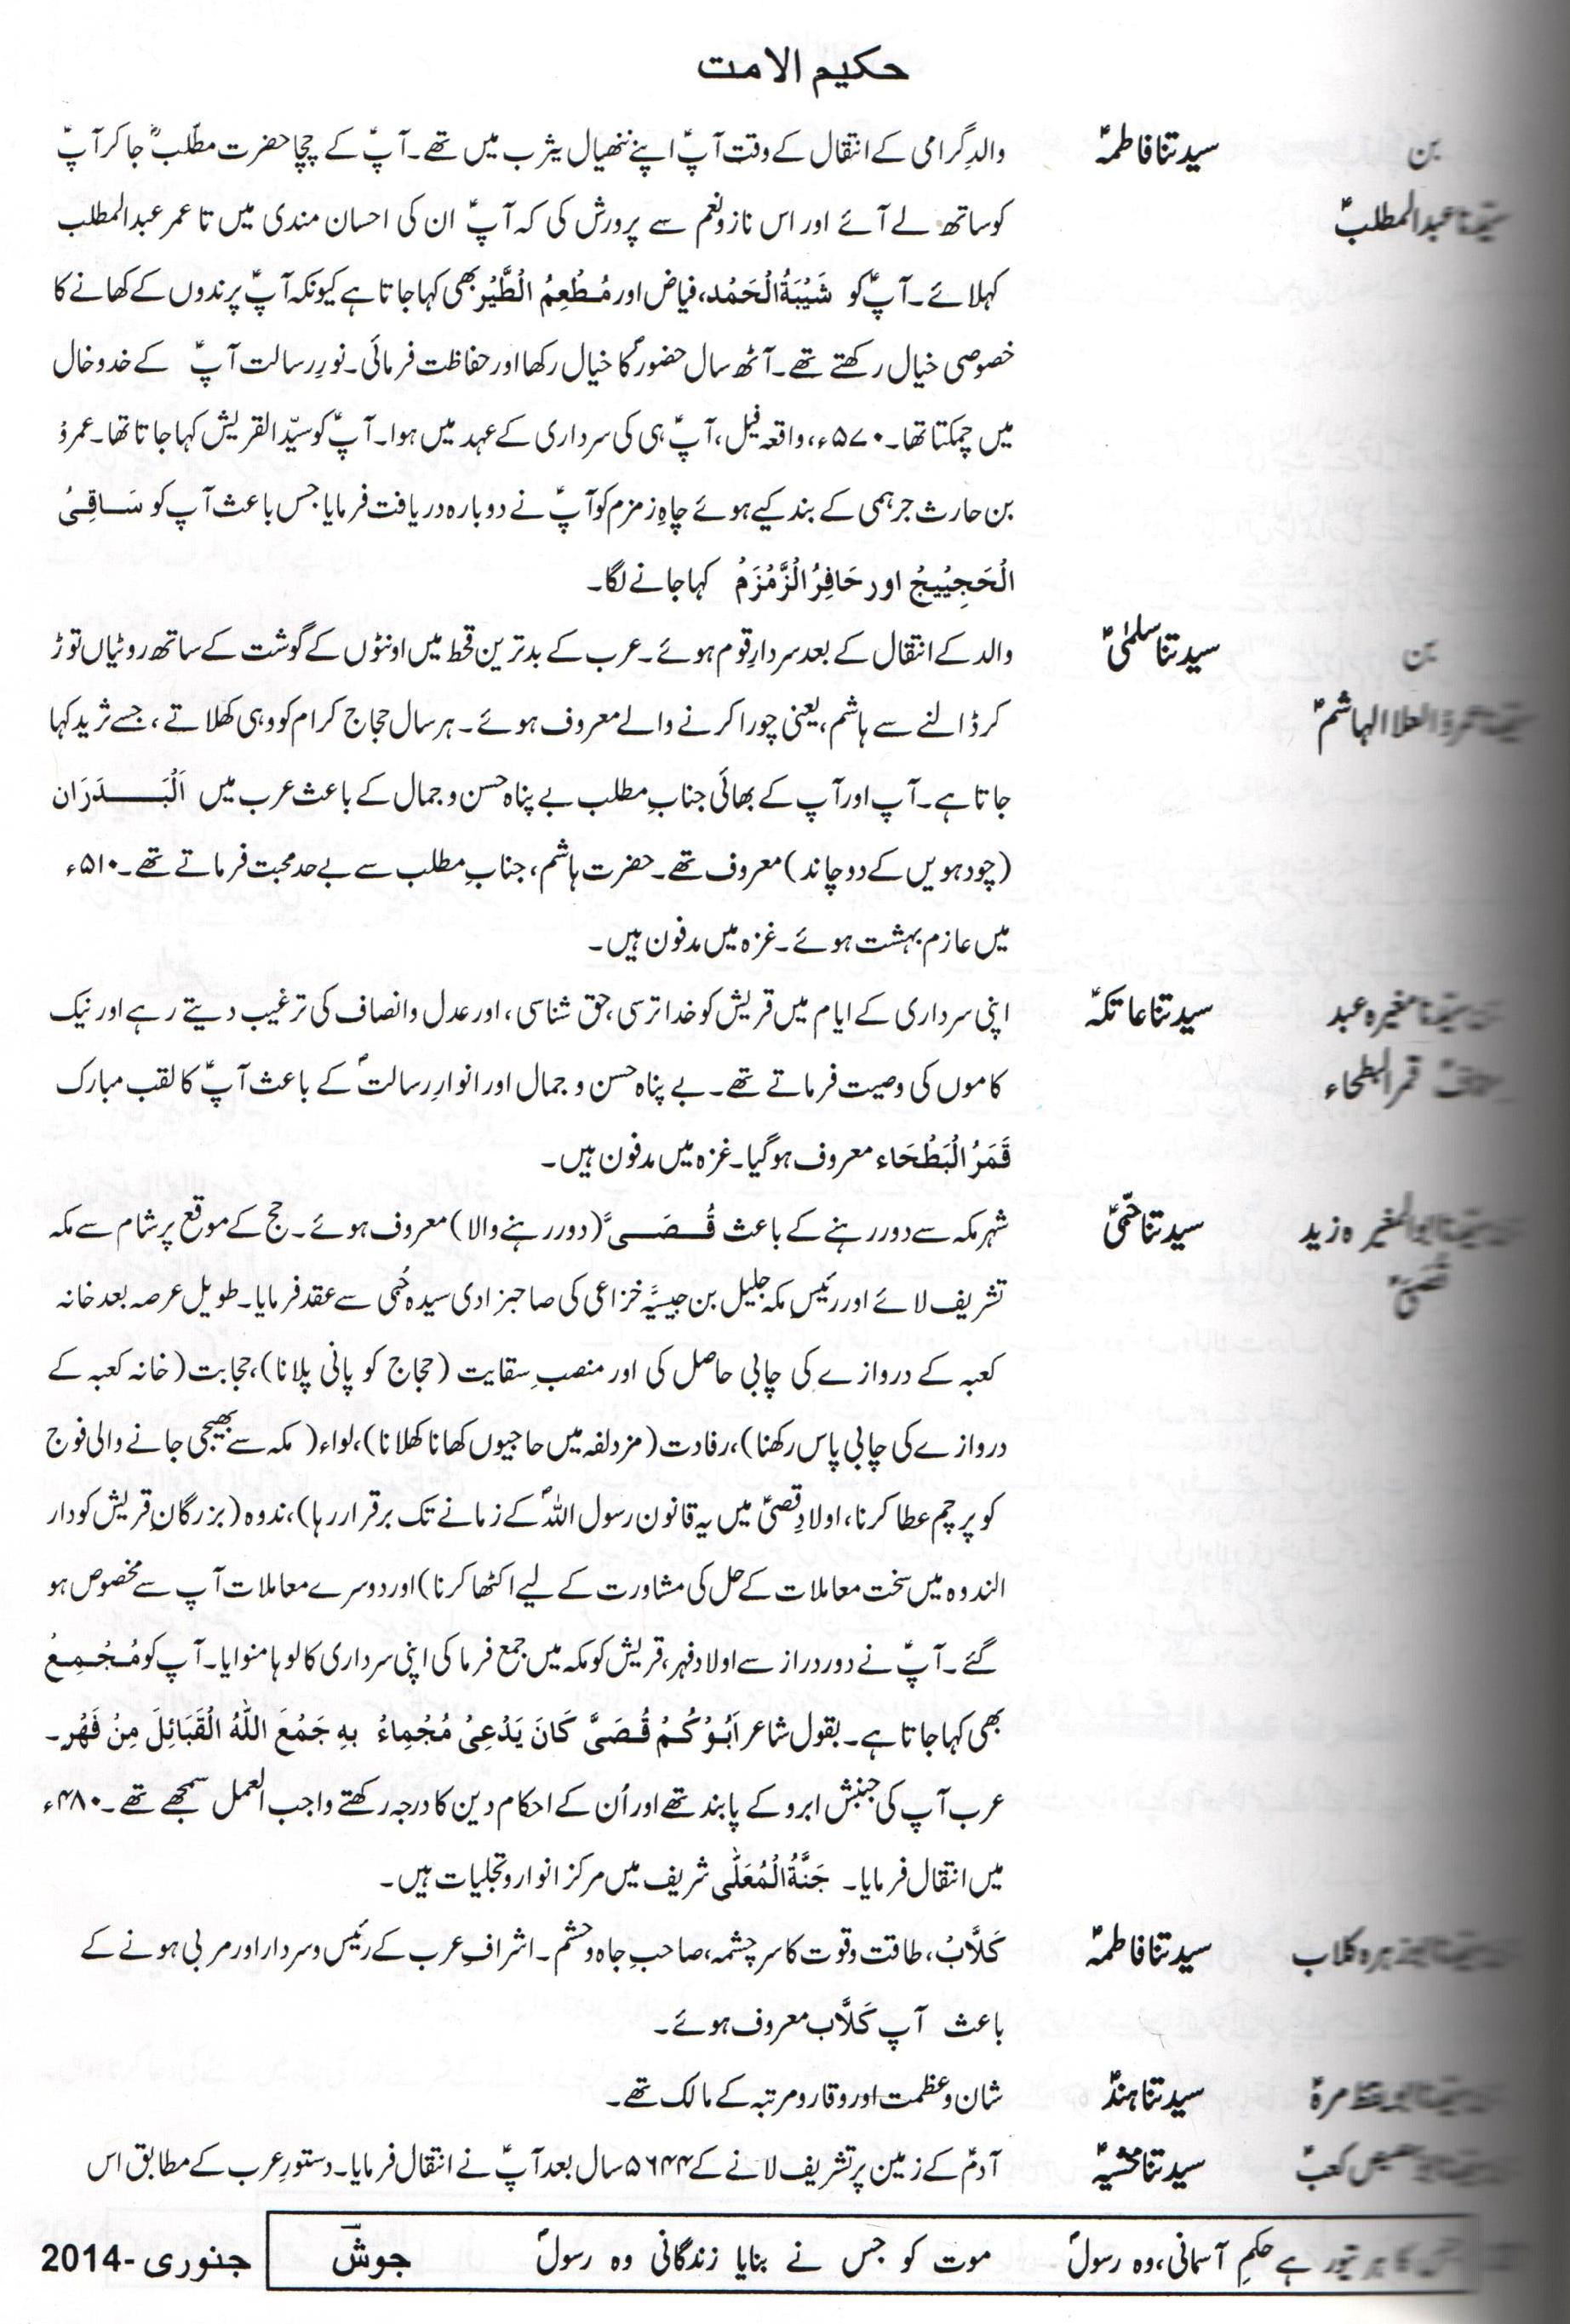 حکیم الامت
بن سیدتنا فاطمہؑ والدِ گرامی کے انتقال کے وقت آپؑ اپنے ننھیال یثرب میں تھے۔ آپؑ کے چچا حضرت مطلبؓ جا کر آپؑ
سیدنا عبدالمطلبؑ کو ساتھ لے آئے اور اس ناز و نعم سے پرورش کی کہ آپؑ ان کی احسان مندی میں تا عمر عبدالمطلب
کہلائے۔ آپؑ کو شَیْبَۃُ الْحَمْد، فیاض اور مُطْعِمُ الطَّیْر بھی کہا جاتا ہے کیونکہ آپؑ پرندوں کے کھانے کا
خصوصی خیال رکھتے تھے۔ آٹھ سال حضورؐ کا خیال رکھا اور حفاظت فرمائی۔ نورِ رسالت آپؑ کے خدوخال
میں چمکتا تھا۔ ۵۷۰ء، واقعہ فیل، آپؑ ہی کی سرداری کے عہد میں ہوا۔ آپؑ کو سیّد القریش کہا جاتا تھا۔ عمرؤ
بن حارث جرہمی کے بند کیے ہوئے چاہِ زمزم کو آپؑ نے دوبارہ دریافت فرمایا جس باعث آپ کو سَـاقِیُ
الْحَجِیْیجُ اور حَافِرُ الْزَّمْزَمُ کہا جانے لگا۔
بن سیدتنا سلمٰیؑ والد کے انتقال کے بعد سردارِ قوم ہوئے۔ عرب کے بدترین قحط میں اونٹوں کے گوشت کے ساتھ روٹیاں توڑ
العلا الہاشمؑ کر ڈالنے سے ہاشم، یعنی چورا کرنے والے معروف ہوئے۔ ہر سال حجاج کرام کو وہی کھلاتے، جسے ثرید کہا
جاتا ہے۔ آپ اور آپ کے بھائی جنابِ مطلب بے پناہ حسن و جمال کے باعث عرب میں اَلْبَـدَرَان
(چودہویں کے دو چاند) معروف تھے۔ حضرت ہاشم، جنابِ مطلب سے بے حد محبت فرماتے تھے۔ ۵۱۰ء
میں عازم بہشت ہوئے۔ غزہ میں مدفون ہیں۔
سیدنا مغیرہ عبد سیدتنا عاتکہؑ اپنی سرداری کے ایام میں قریش کو خدا ترسی، حق شناسی، اور عدل و انصاف کی ترغیب دیتے رہے اور نیک
منافؑ قمر البطحاء کاموں کی وصیت فرماتے تھے۔ بے پناہ حسن و جمال اور انوارِ رسالتؐ کے باعث آپؑ کا لقب مبارک
قَمَرُ الْبَطْحَاء معروف ہو گیا۔ غزہ میں مدفون ہیں۔
سیدنا ابو المغیرہ زید سیدتنا حُبّیؑ شہر مکہ سے دور رہنے کے باعث قُـصَـیّ (دور رہنے والا) معروف ہوئے۔ حج کے موقع پر شام سے مکہ
قصیؑ تشریف لائے اور رئیسِ مکہ جلیل بن حیسیَّہ خزاعی کی صاحبزادی سیدہ حُبی سے عقد فرمایا۔ طویل عرصہ بعد خانہ
کعبہ کے دروازے کی چابی حاصل کی اور منصبِ سقایت (حجاج کو پانی پلانا)، حجابت (خانہ کعبہ کے
دروازے کی چابی پاس رکھنا)، رفادت (مزدلفہ میں حاجیوں کھانا کھلانا)، لواء (مکہ سے بھیجی جانے والی فوج
کو پرچم عطا کرنا، اولادِ قصیؑ میں یہ قانون رسول اللہؐ کے زمانے تک برقرار رہا)، ندوہ (بزرگانِ قریش کو دار
الندوہ میں سخت معاملات کے حل کی مشاورت کے لیے اکٹھا کرنا) اور دوسرے معاملات آپ سے مخصوص ہو
گئے۔ آپؑ نے دور دراز سے اولاد فہر، قریش کو مکہ میں جمع فرما کی اپنی سرداری کا لوہا منوایا۔ آپ کو مُجْمِعُ
بھی کہا جاتا ہے۔ بقول شاعر اَبُوْ کُمْ قُصَیَّ کَانَ یَدْعِیْ مُجْمِاءُ بِہِ جَمْعَ اللّٰہُ الْقَبَائِلَ مِنْ فَھْرِ۔
عرب آپ کی جنبش ابرو کے پابند تھے اور اُن کے احکام دین کا درجہ رکھتے واجب العمل سمجھے تھے۔ ۴۸۰ء
میں انتقال فرمایا۔ جَنَّۃُ الْمُعَلّٰی شریف میں مرکز انوار و تجلیات ہیں۔
زہرہ کلاب سیدتنا فاطمہؑ کَلَّابُ، طاقت و قوت کا سرچشمہ، صاحبِ جاہ و حشم۔ اشرافِ عرب کے رئیس و سردار اور مربی ہونے کے
باعث آپ کَلَّاب معروف ہوئے۔
مرہؑ سیدتنا ہندؑ شان و عظمت اور وقار و مرتبہ کے مالک تھے۔
کعبؑ سیدتنا محشیہؑ آدمؑ کے زمین پر تشریف لانے کے ۵۶۴۴ سال بعد آپؑ نے انتقال فرمایا۔ دستورِ عرب کے مطابق اس
کا ہر تیور ہے حکمِ آسمانی، وہ رسولؐ موت کو جس نے بنایا زندگانی وہ رسولؐ جوشؔ جنوری -2014